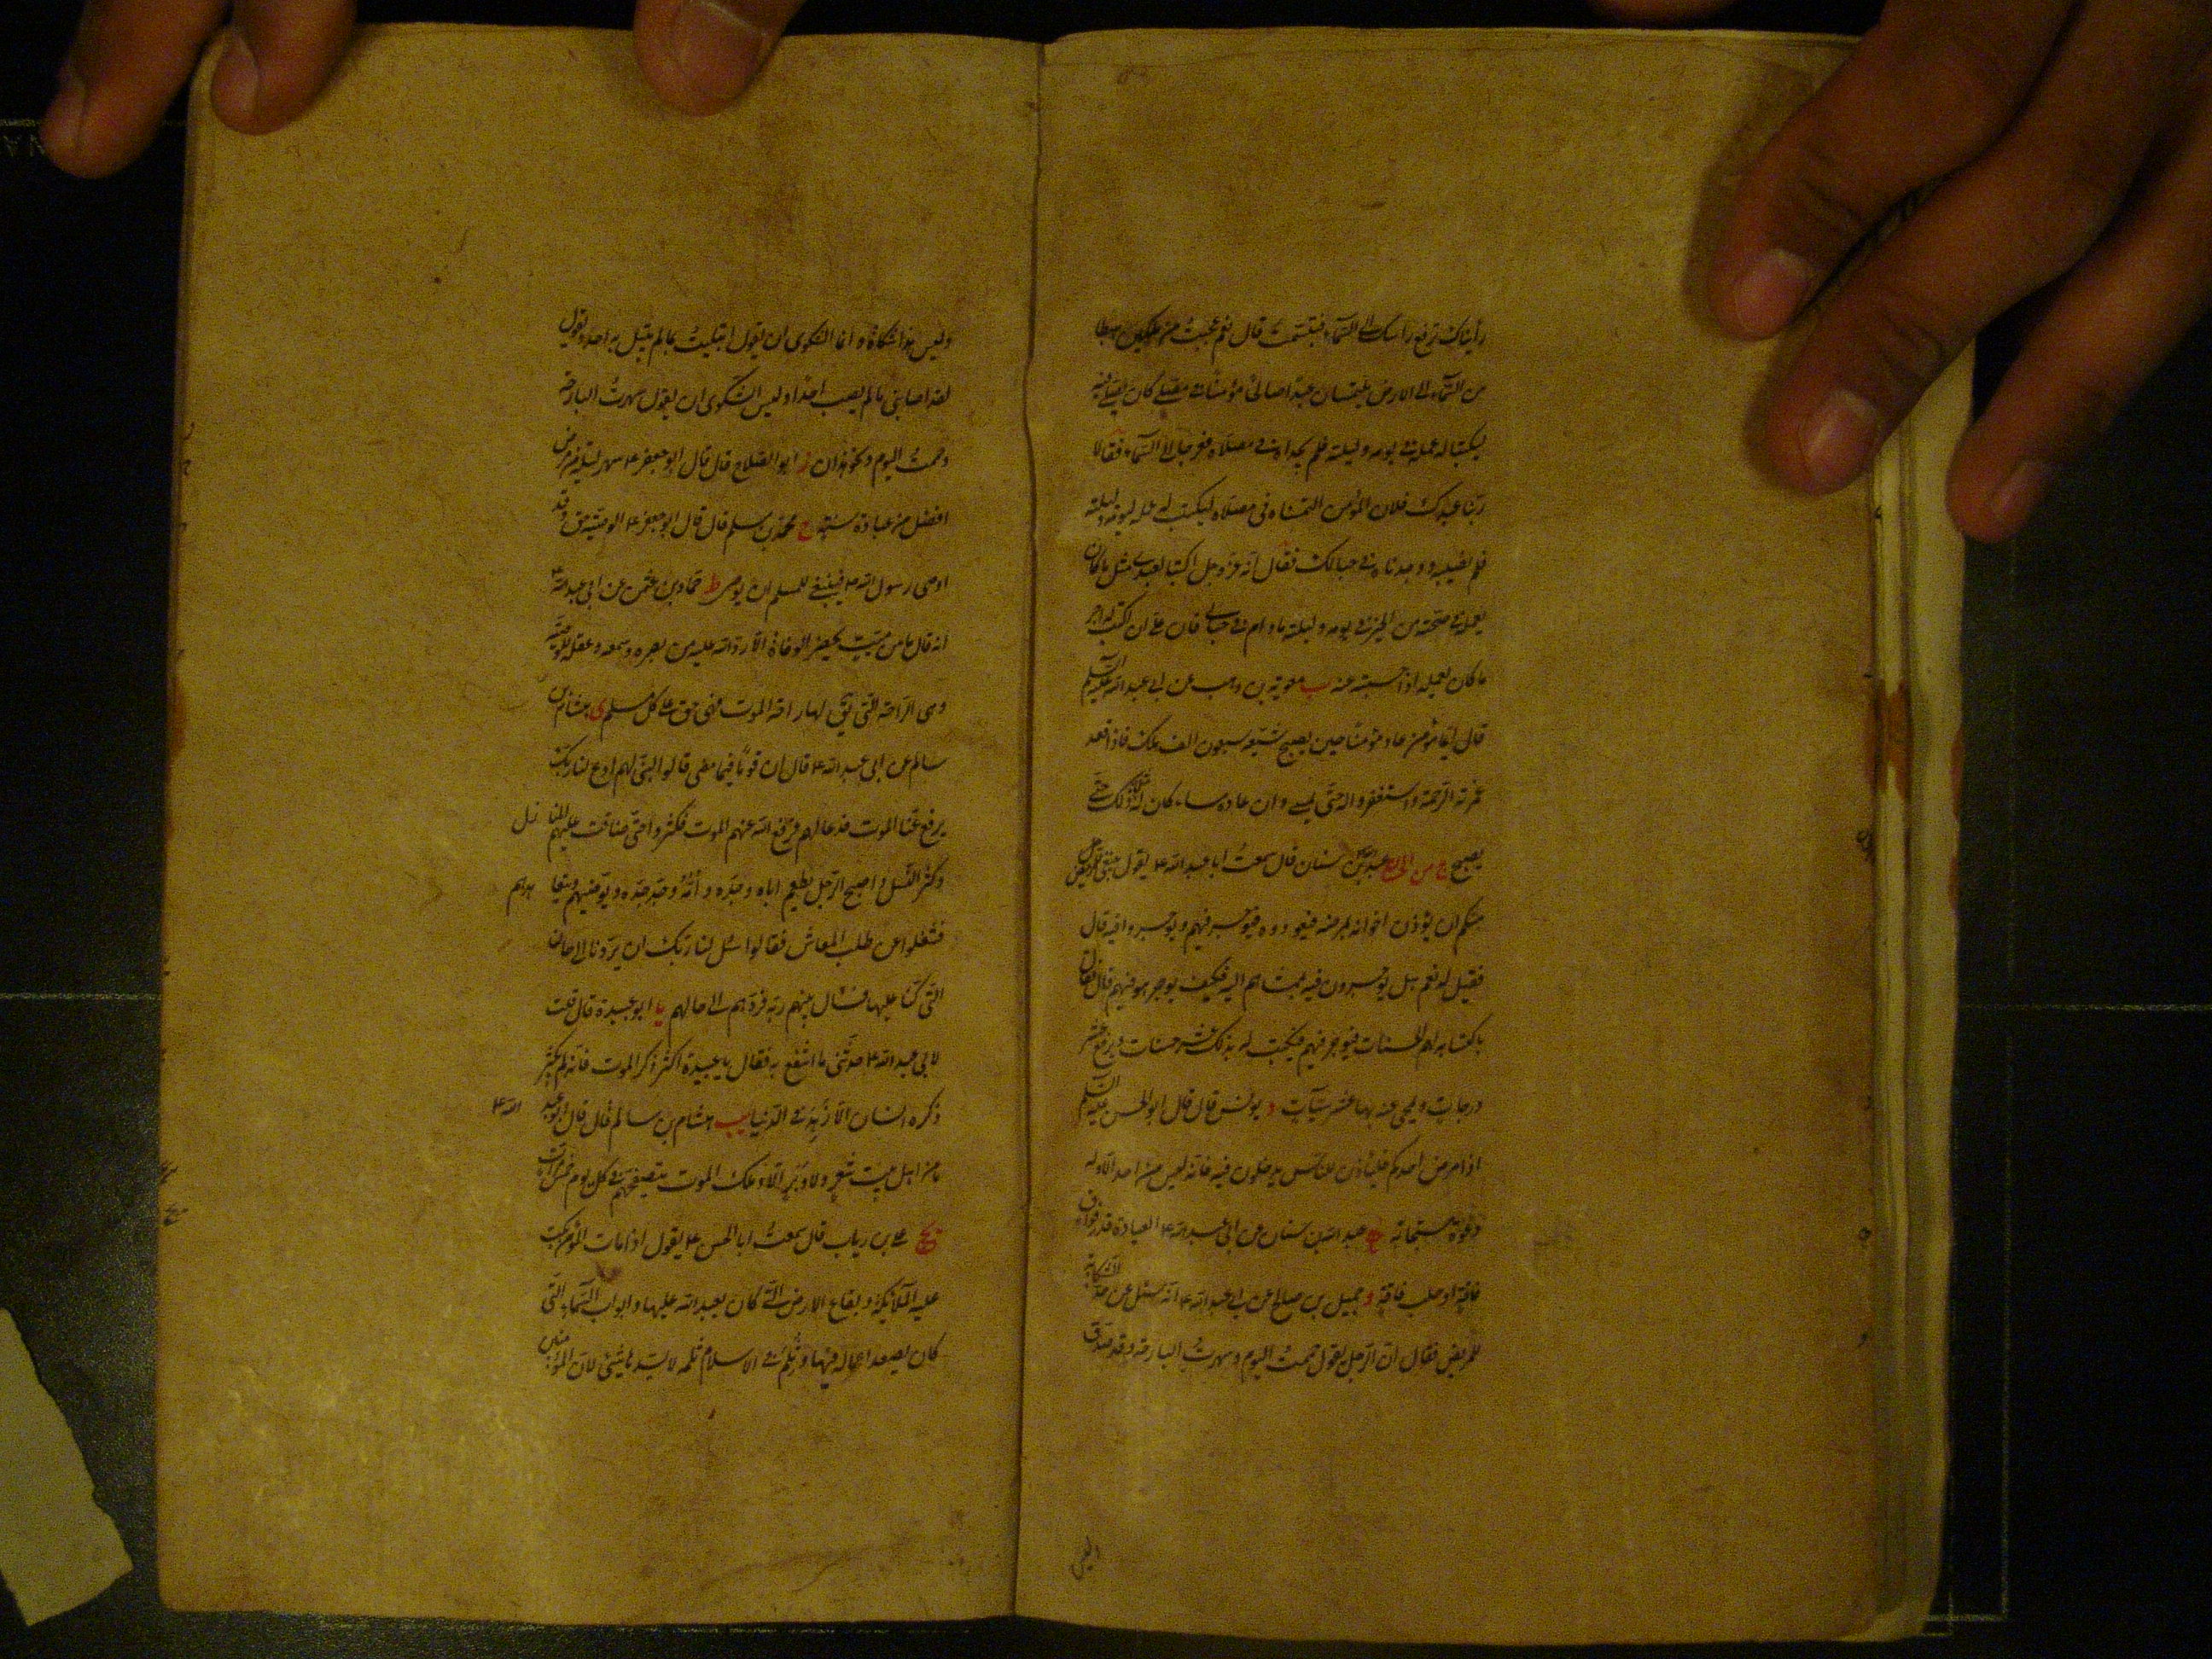 رأيناك ترفع راسك الى السّمآء فتبسّمت قال نعم عجبتُ من ملكين هبطا
من السّمآء الى الارض يلتمسان عبدا صالحًا مؤمنا فى مصلّى كان يصلّى فيه
ليكتبا له عمله فى يومه وليلته فلم يجداه فى مصلّاه فعرجا الى السّمآء فقالا
ربّنا عبدك فلان المؤمن التمسناه فى مصلّاه لنكتب له عمله ليومه وليلته
فلم نصبه ووجدناه فى حبالك فقال الله عزّ وجل اكتبا لعبدى مثل ما كان
يعمله فى صحّته من الخير فى يومه وليلته ما دام فى حبالى فان علىّ ان اكتب له اجر
ما كان يعمله اذا حبسته عنه ب معوية بن وهب عن ابى عبد الله عليه السّلم
قال ايّما مؤمن عاد مؤمنا حين يصبح شيّعه سبعون الف ملك فاذا قعد
غمرته الرّحمة واستغفروا له حتّى يمسى وان عاده مساء كان له مثل ذلك حتّى
يصبح ج من الحسان عبد الله بن سنان قال سمعتُ ابا عبد الله ع يقول ينبغى للمريض
منكم ان يؤذن اخوانه بمرضه فيعودوه فيوجر فيهم ويوجروا فيه قال
فقيل له نعم هل يوجرون فيه بممشاهم اليه فكيف يوجر هو فيهم قال فقال
باكتسابه لهم الحسنات فيوجر فيهم فيكتب له بذلك عشر حسنات ويرفع له عشر
درجات ويمحى عنه بها عشر سيّآت د يونس قال قال ابو الحسن عليه السّلم
اذا مرض احدكم فليأذن للنّاس يدخلون فيه فانّه ليس من احد الّا وله
دعوة مستجابة ه عبد الله بن سنان عن ابى عبد الله ع العيادة قدر فواق
ناقة او حلب ناقة و جميل بن صالح عن ابى عبد الله ع انّه سئل عن حدّ الشّكاية
للمريض فقال انّ الرّجل يقول حممتُ اليوم وسهرتُ البارحة وقد صدق
وليس
وليس هذا شكاة انّما الشّكوى ان يقول ابتليتُ بما لم يبتل به احد ويقول
لقد اصابنى ما لم يصب احدا وليس الشّكوى ان يقول سهرتُ البارحة
وحممتُ اليوم ونحو هذا ز ابو الصّلاح قال قال ابو جعفر ع سهر ليلة من مرض
افضل من عبادة سنة ح محمّد بن مسلم قال قال ابو جعفر ع الوصيّة حق وقد
اوصى رسول الله ص فينبغى للمسلم ان يوصى ط حمّاد بن عثمن عن ابى عبد الله ع
انه قال ما من ميّت يحضر الوفاة الّا ردّ الله عليه من بصره وسمعه وعقله للوصيّة
وهى الرّاحة التى يقال لها راحة الموت فهى حق على كل مسلم ى هشام بن
سالم عن ابى عبد الله ع قال ان قومًا فيما مضى قالوا لنبىّ لهم ادع لنا ربّك
يرفع عنّا الموت فدعا لهم فرفع الله عنهم الموت فكثروا حتّى ضاقت عليهم المنازل
وكثر النّسل واصبح الرّجل يطعم اباه وجدّه وامّه وجدّ جدّه ويوضّيهم ويتعاهدهم
فشغلوا عن طلب المعاش فقالوا سل لنا ربّك ان يردّنا الى حالنا
التّى كنّا عليها فسأل نبيّهم ربّه فردّهم الى حالهم يا ابو عبيدة قال قلت
لابى عبد الله ع حدّثنى ما انتفع به فقال يا با عبيدة اكثر ذكر الموت فانّه لم يكثر
ذكره انسان الّا زهد فى الدّنيا يب هشام بن سالم قال قال ابو عبد الله ع
ما من اهل بيت شعر ولا وبر الّا وملك الموت يتصفّحهم فى كل يوم خمس مرّات
يج على بن رياب قال سمعتُ ابا الحسن ع يقول اذا مات المؤمن بكت
عليه الملائكة وبقاع الارض التّى كان يعبد الله عليها وابواب السّمآء التّى
كان يصعد اعماله فيها وثلم فى الاسلام ثلمه لا يسدّها شئ لانّ المؤمنين